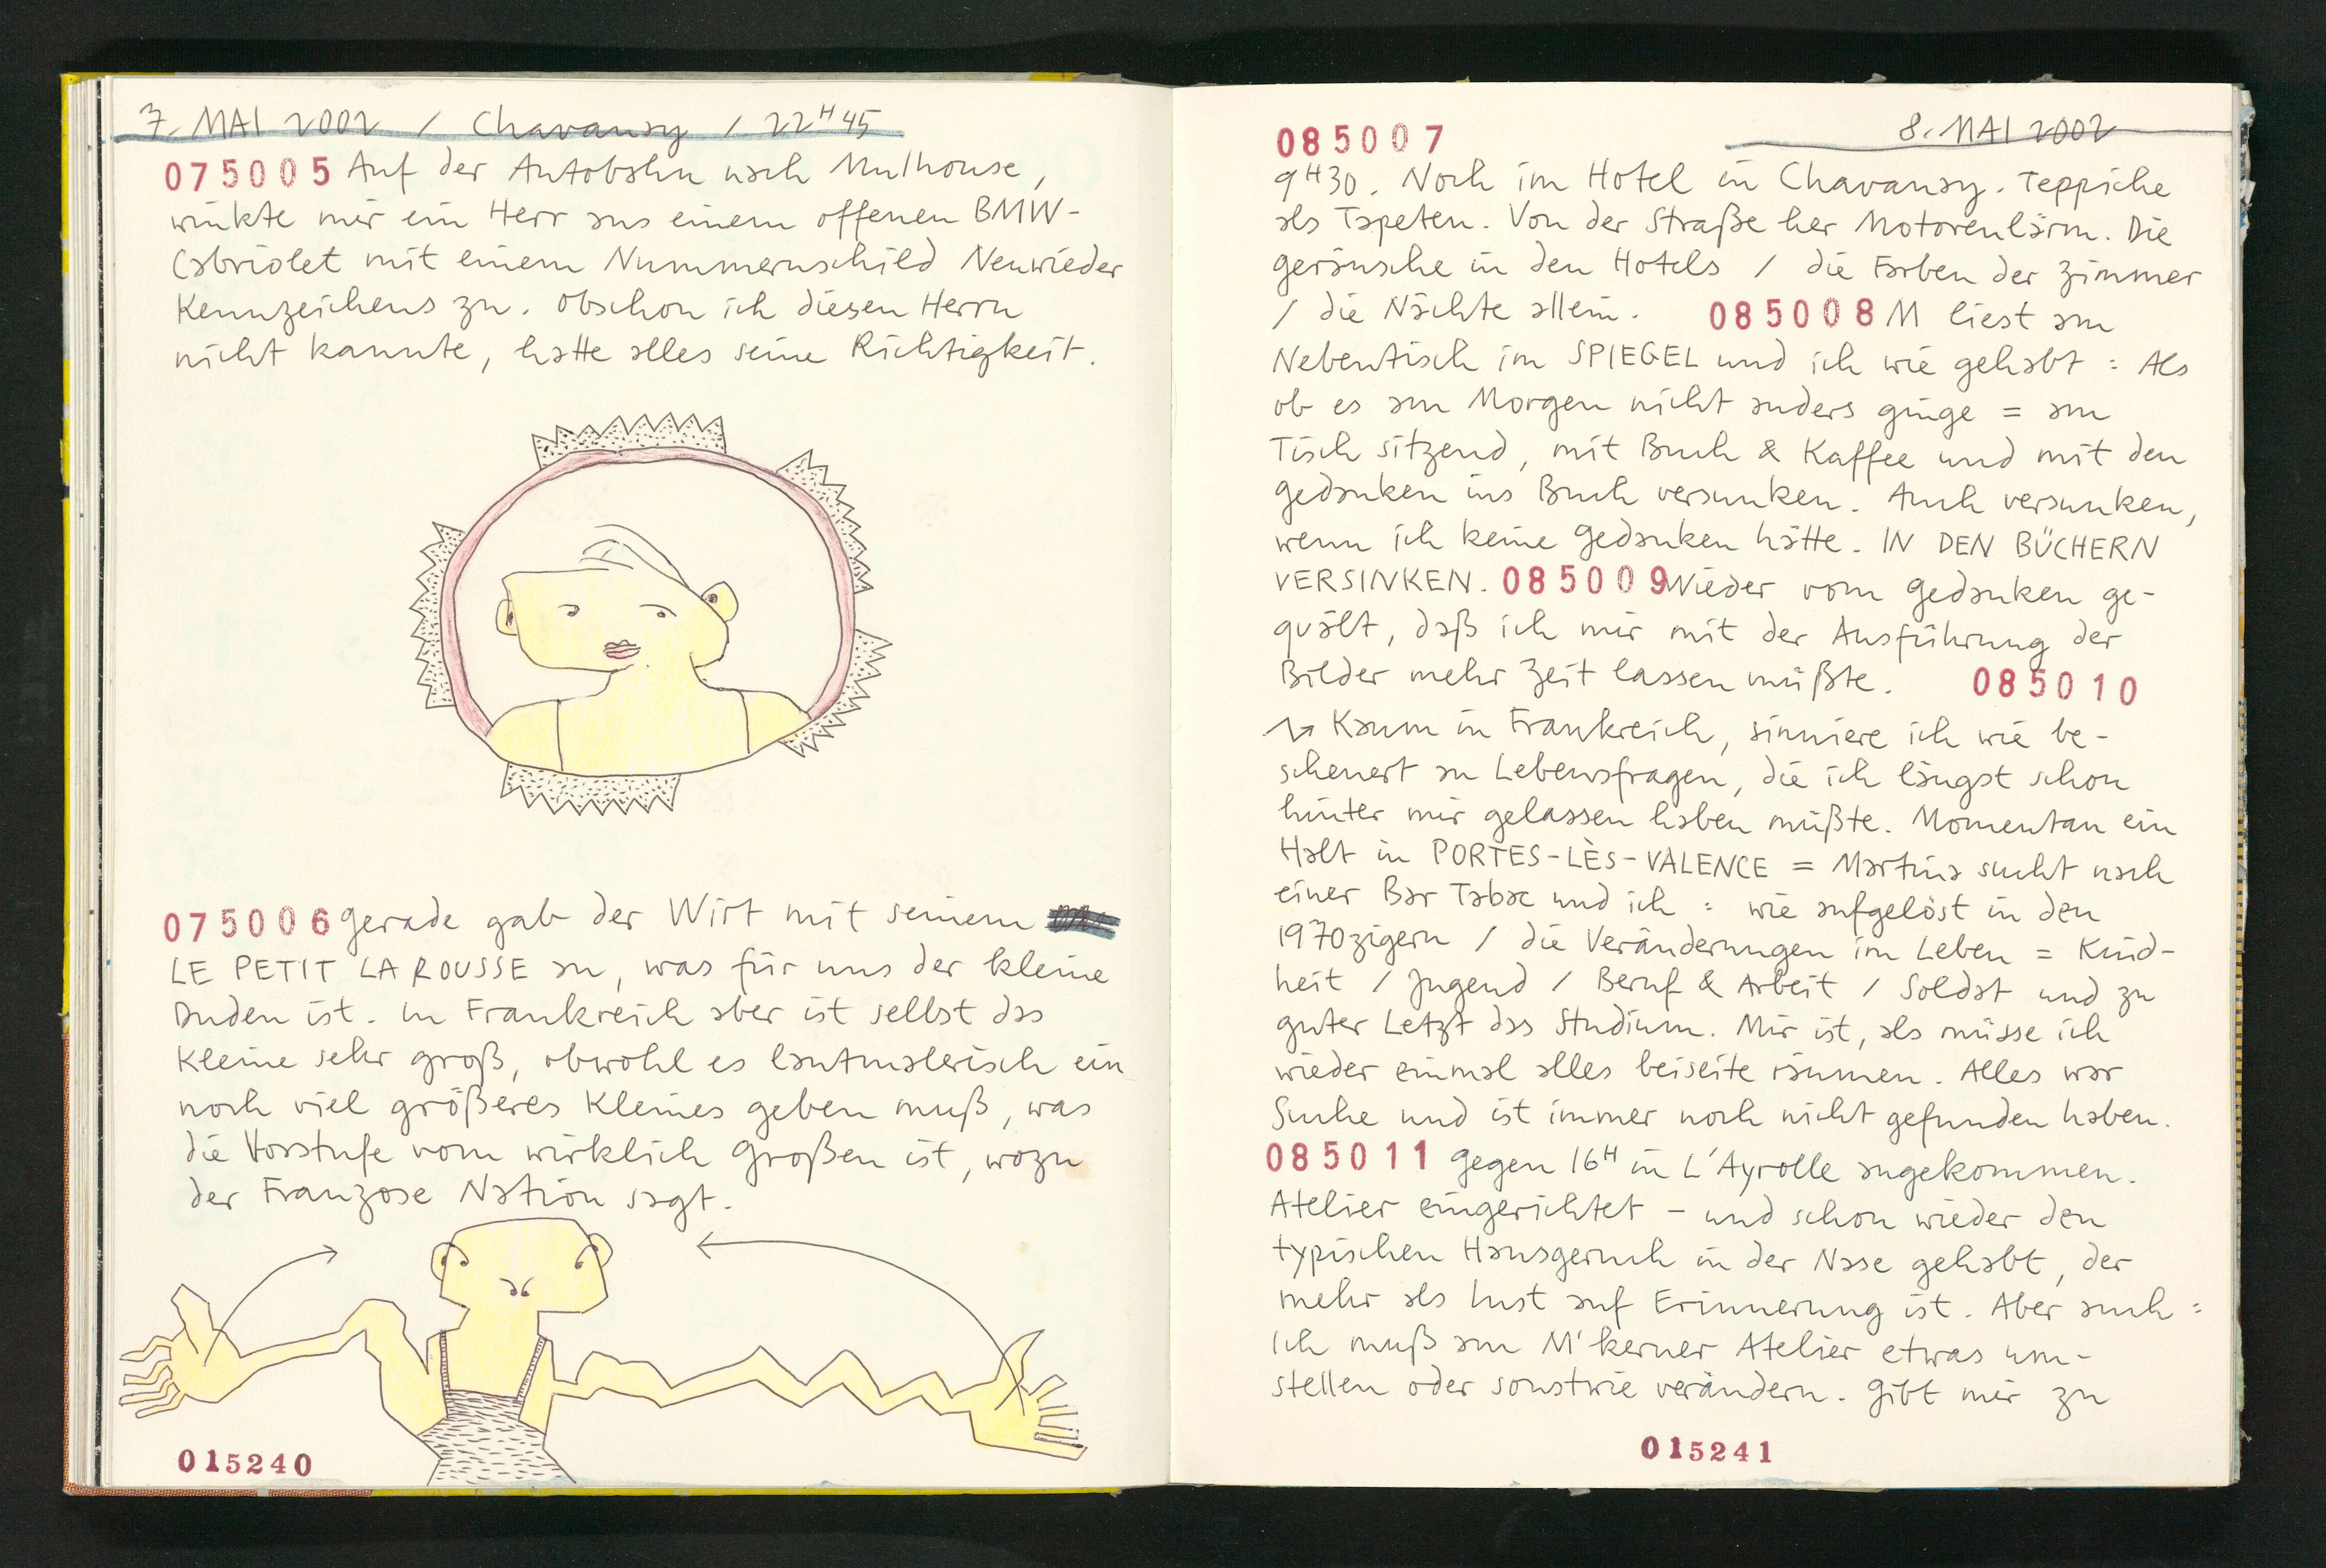 7. MAI 2002 / Chavansy / 22H45
075005 Auf der Autobahn nach Mulhouse,
winkte mir ein Herr aus einem offenen BMW-
Cabriolet mit einem Nummernschild Neuwieder
Kennzeichens zu. Obschon ich diesen Herrn
nicht kannte, hatte alles seine Richtigkeit.
075006 Gerade gab der Wirt mit seinem
LE PETIT LAROUSSE an, was für uns der kleine
Duden ist. In Frankreich aber ist selbst das
Kleine sehr groß, obwohl es lautmalerisch ein
noch viel größeres Kleines geben muß, was
die Vorstufe vom wirklich Großen ist, wozu
der Franzose Nation sagt.
015240
085007 8. MAI 2002
9H30. Noch im Hotel in Chavansy. Teppiche
als Tapeten. Von der Straße her Motorenlärm. Die
Geräusche in den Hotels / die Farben der Zimmer
/ die Nächte allein. 085008 M liest am
Nebentisch im SPIEGEL und ich wie gehabt : Als
ob es am Morgen nicht anders ginge = am
Tisch sitzend, mit Buch & Kaffee und mit den
Gedanken ins Buch versunken. Auch versunken,
wenn ich keine Gedanken hätte. IN DEN BÜCHERN
VERSINKEN. 085009 Wieder vom Gedanken ge-
quält, daß ich mir mit der Ausführung der
Bilder mehr Zeit lassen müßte. 085010
Kaum in Frankreich, sinniere ich wie be-
scheuert an Lebensfragen, die ich längst schon
hinter mir gelassen haben müßte. Momentan ein
Halt in PORTES-LÈS-VALENCE = Martina sucht nach
einer Bar Tabac und ich : wie aufgelöst in den
1970zigern / die Veränderungen im Leben = Kind-
heit / Jugend / Beruf & Arbeit / Soldat und zu
guter Letzt das Studium. Mir ist, als müsse ich
wieder einmal alles beiseite räumen. Alles war
Suche und ist immer noch nicht gefunden haben.
085011 Gegen 16H in L'Ayrolle angekommen.
Atelier eingerichtet – und schon wieder den
typischen Hausgeruch in der Nase gehabt, der
mehr als Lust auf Erinnerung ist. Aber auch :
Ich muß am M'kerner Atelier etwas um-
stellen oder sonstwie verändern. Gibt mir zu
015241